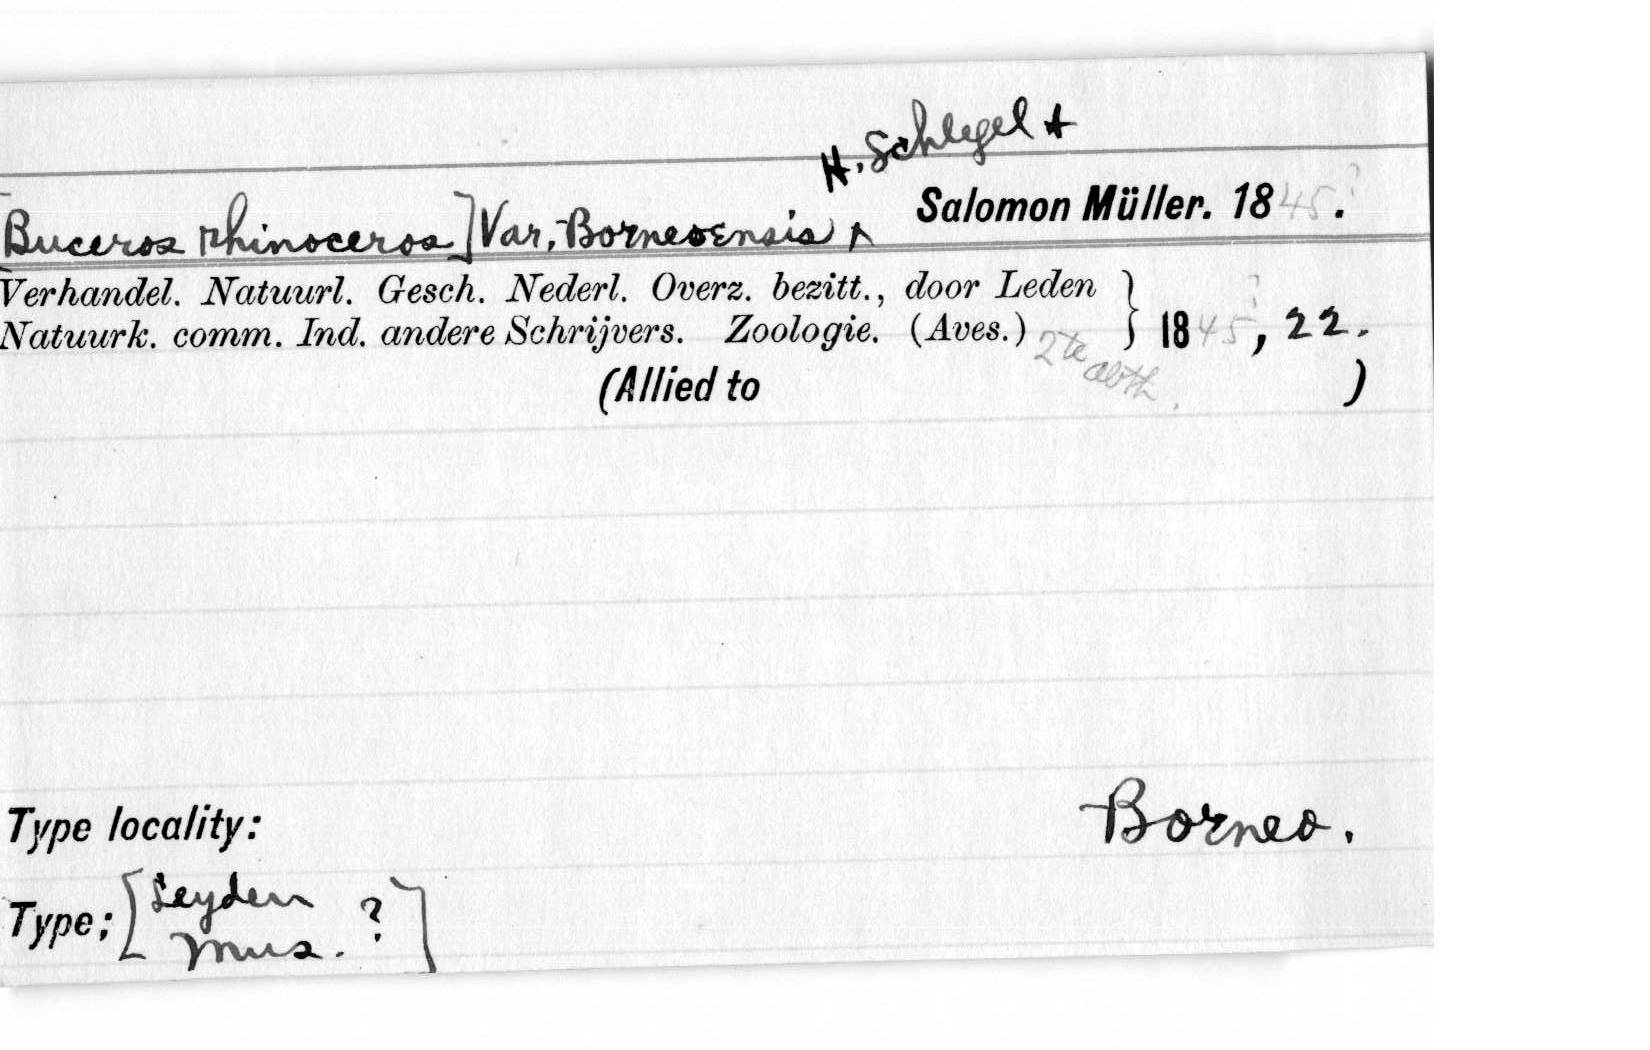 H. Schlegel +
[Buceros rhinoceros] Var. Borneoensis ^ Salomon Müller. 1845?.
Verhandel. Natuurl. Gesch. Nederl. Overz. bezitt., door Leden
Natuurk. comm. Ind. andere Schrijvers. Zoologie. (Aves.) } 1845?, 22.
2te abth.
(Allied to )
Type locality: Borneo.
Type: [Leyden Mus. ?]